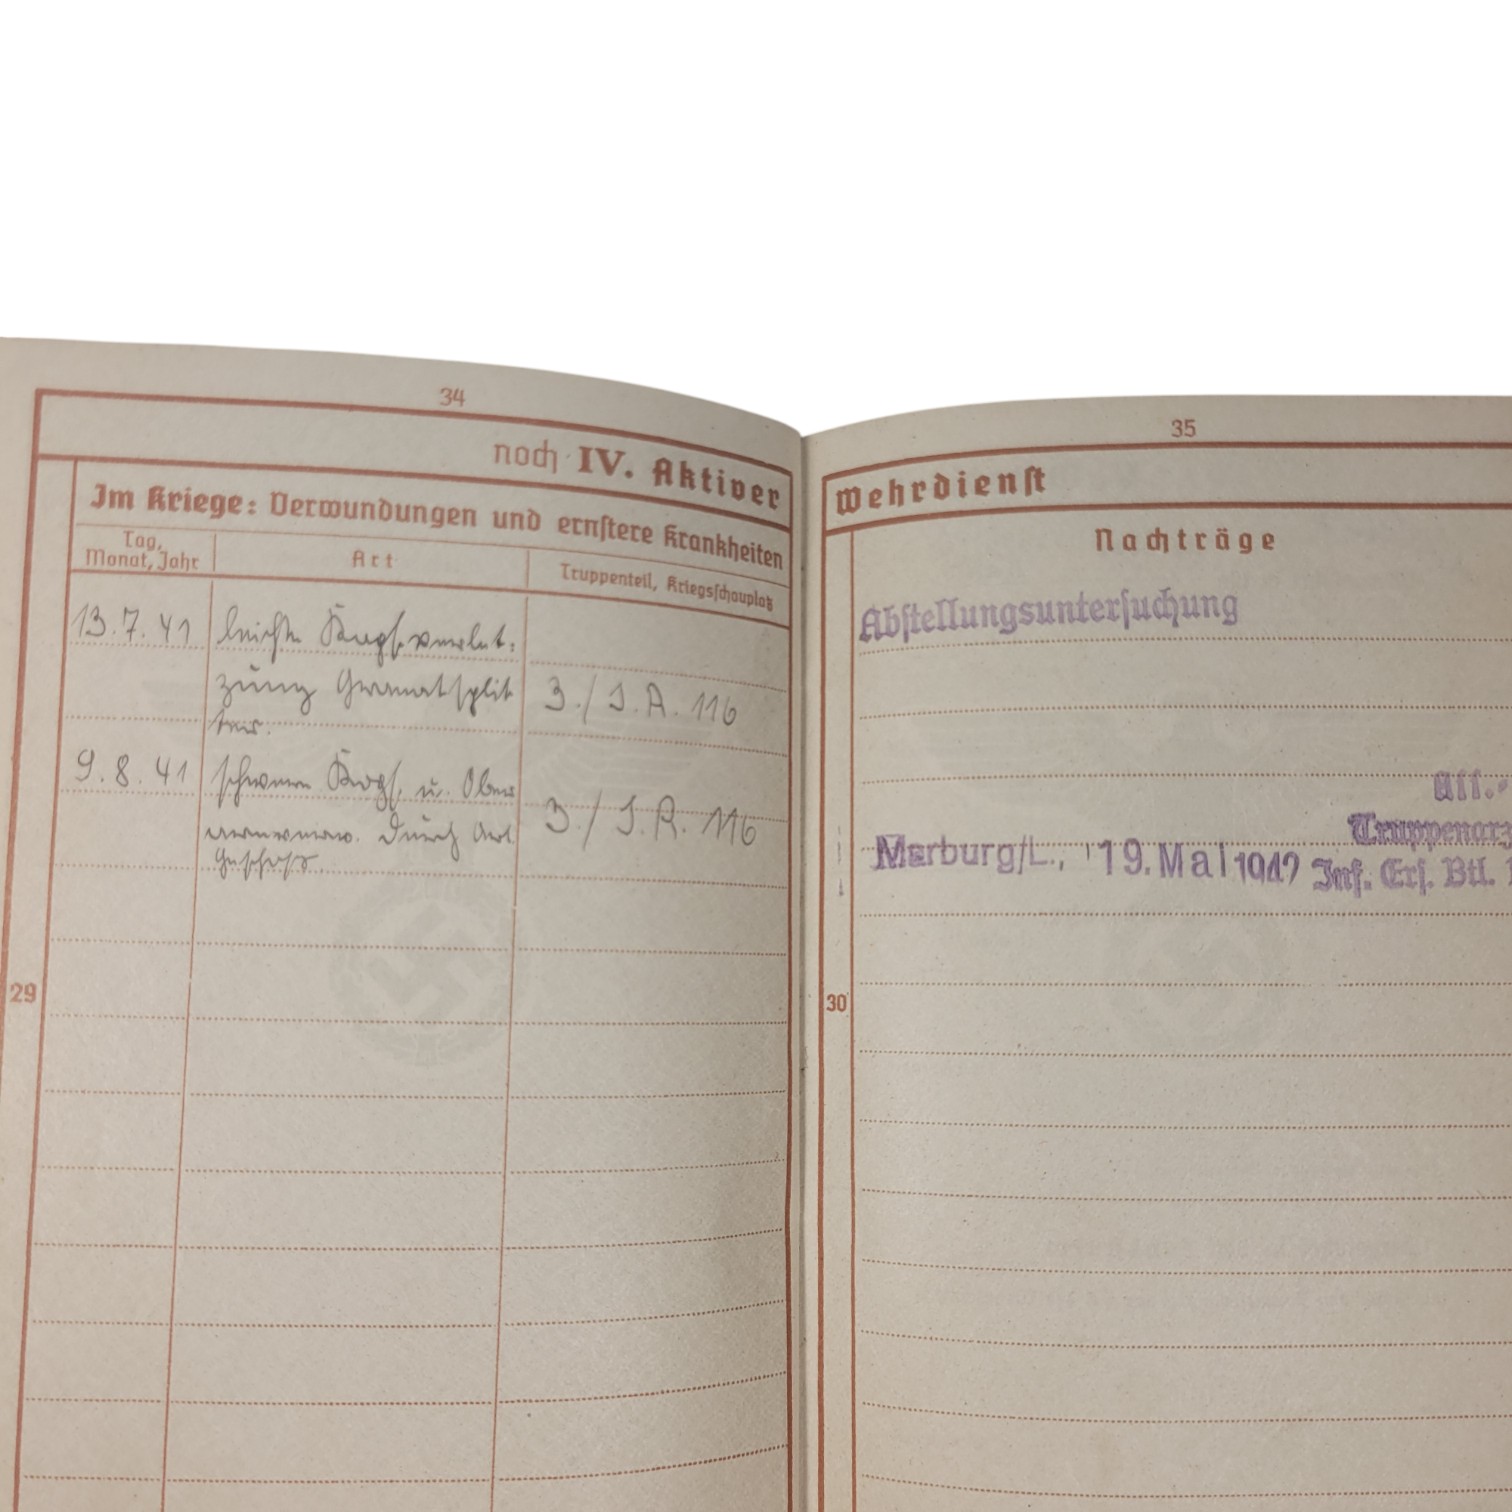 34
noch IV. Aktiver
Im Kriege: Verwundungen und ernstere Krankheiten
Tag,
Monat, Jahr
Art
Truppenteil, Kriegsschauplatz
13.7.41 leichte Kopfverlet-
zung Granatsplit
ter. 3./I.R. 116
9.8.41 schwere Kopf. u. Ober
durch Art.
Geschoß. 3./I.R. 116
29
35
Wehrdienst
Nachträge
Abstellungsuntersuchung
Truppenarz
Marburg/L., 19. Mai 1942 Inf. Ers. Btl.
30